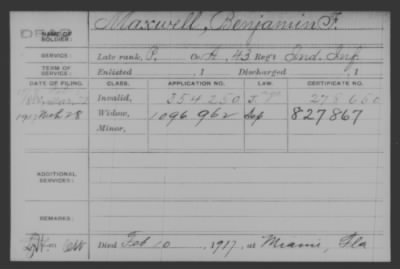 Maxwell, Benjamin F.
NAME OF SOLDIER:
SERVICE: Late rank, P. Co. A, 43 Reg't Ind. Inf.
TERM OF SERVICE: Enlisted , 1 Discharged , 1
DATE OF FILING. CLASS. APPLICATION NO. LAW. CERTIFICATE NO.
Invalid, 354 250 278 650
1917 Mch 28 Widow, 1096 962 827867
Minor,
ADDITIONAL SERVICES:
REMARKS:
Died Feb 10, 1917, at Miami, Fla